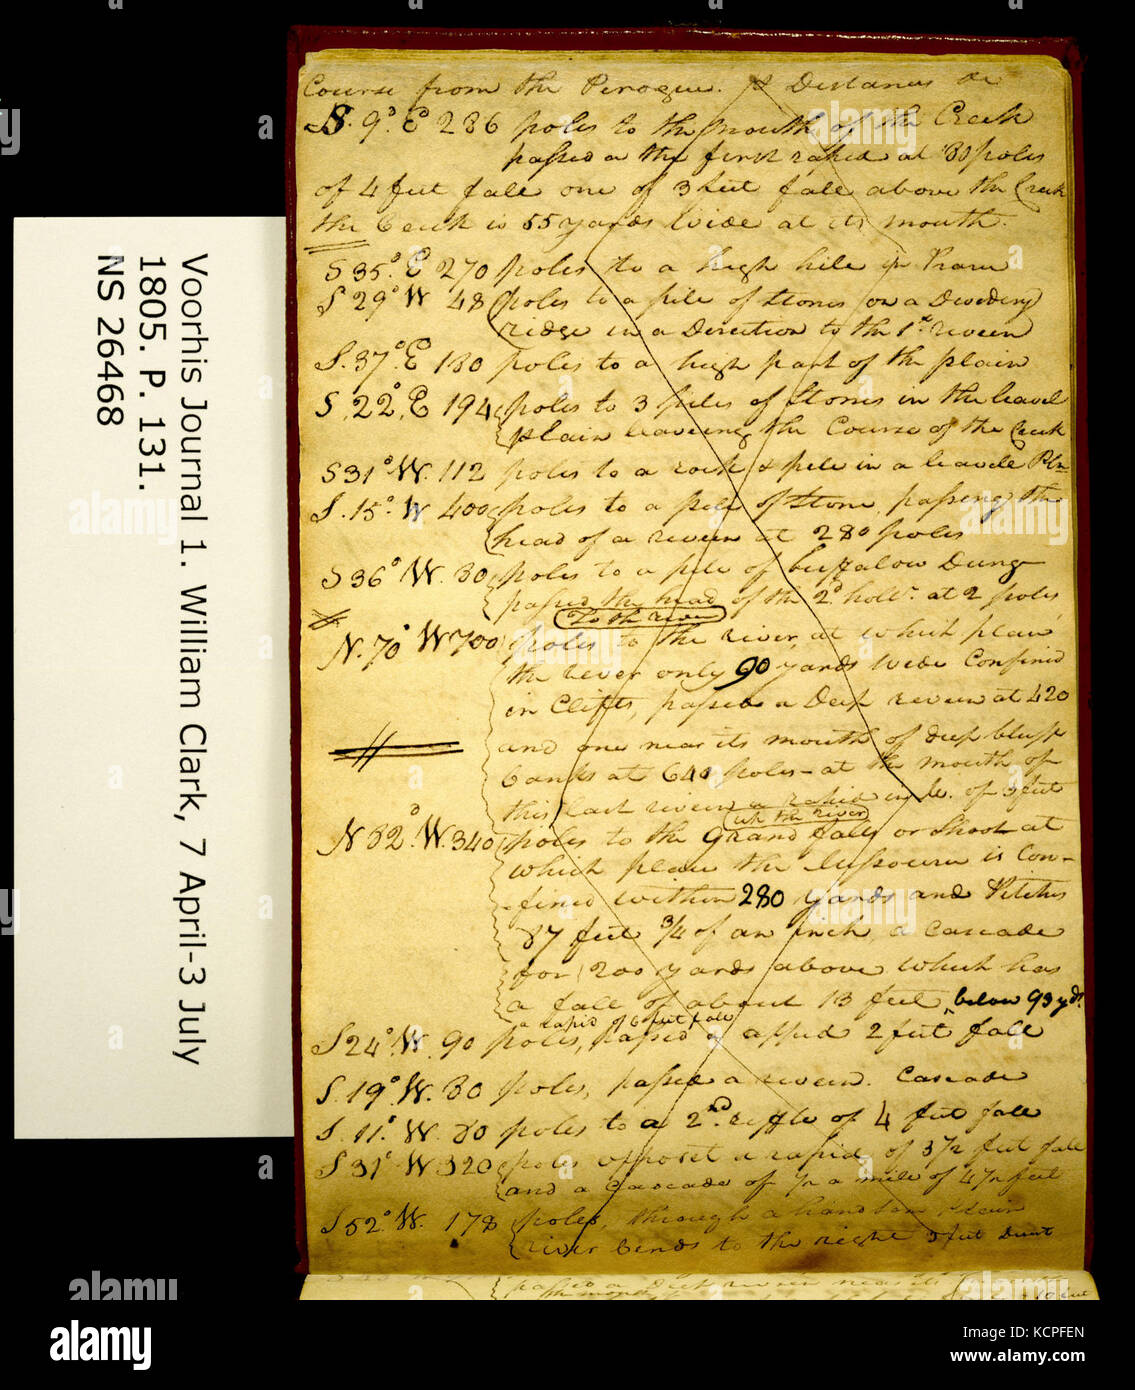 Voorhis Journal 1. William Clark, 7 April-3 July
1805. P. 131.
NS 26468
Course from the Perogue. & Distances &c
S. 9° E 286 poles to the mouth of the Creek
passed a the first rapid at 80 poles
of 4 feet fall one of 3 feet fall above the Creek
the Creek is 55 yards Wide at its mouth.
S 35° E 270 poles to a high hill in
S 29° W 48 poles to a pile of Stones on a Deveding
ridge in a Derection to the 1st reveen
S. 37° E 180 poles to a high part of the plain
S. 22° E 194 poles to 3 piles of Stones in the leavel
plain leaveing the Course of the Creek
S 31° W. 112 poles to a rock & pile in a leavele Pln
S. 15° W 400 poles to a pile of Stone, passing the
head of a reveen at 280 poles
S 36° W. 80 poles to a pile of buffalow Dung
passed the head of the 2d holl. at 2 poles
To the river
N. 70° W 700 poles to the river, at which place
the river only 90 yards wide Confined
in Clifts, passed a Deep reveen at 420
and one near its mouth of deep bluff
banks at 640 poles - at the mouth of
this last riveen a rapid of 3 feet
up the river
N 82° W. 340 poles to the Grand falls or Shoot at
which place the Missouri is Con-
fined within 280 yards and Pitches
87 feet 3/4 of an inch, a Cascade
for 200 yards above which has
a fall of about 13 feet, below 93 yds.
a rapid of 6 feet fall
S 24° W. 90 poles, passed a appid 2 feet fall
S. 19° W. 80 poles, passed a riveen. Cascade
S. 11° W. 80 poles to a 2nd riffle of 4 feet fall
S 31° W 320 poles opposet a rapid of 3 1/2 feet fall
and a Cascade of 1/2 a mile of 4 1/2 feet
S 52° W. 178 poles, through a handsom plain
river bends to the right 3 feet
alamy
Image ID: KCPFEN
www.alamy.com